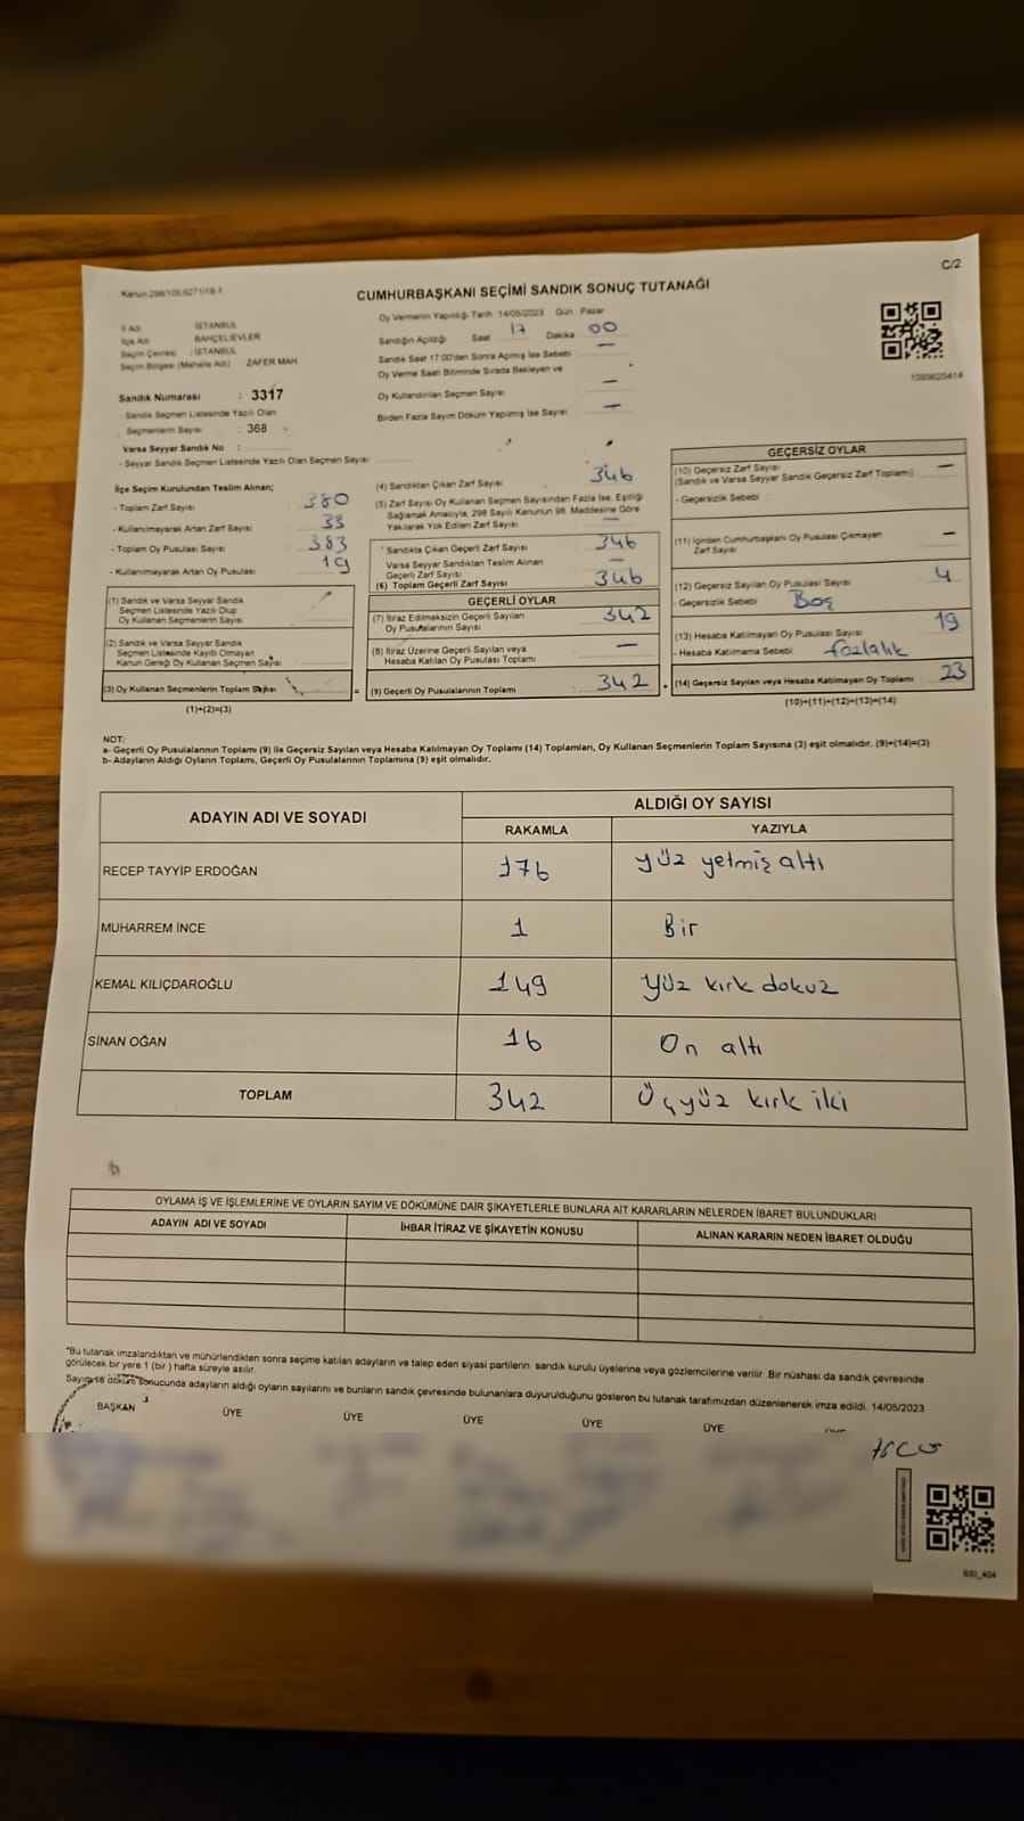 C/2
CUMHURBAŞKANI SEÇİMİ SANDIK SONUÇ TUTANAĞI
Oy Vermenin Yapıldığı Tarih 14/05/2023 Gün Pazar
İl Adı İSTANBUL
İlçe Adı BAHÇELİEVLER
Seçim Çevresi : İSTANBUL
Seçim Bölgesi (Mahalle Adı) ZAFER MAH
Sandığın Açıldığı Saat 17 Dakika 00
Sandık Saat 17.00'den Sonra Açılmış İse Sebebi —
Oy Verme Saati Bitiminde Sırada Bekleyen ve
Oy Kullandırılan Seçmen Sayısı —
Birden Fazla Sayım Döküm Yapılmış İse Sayısı —
Sandık Numarası : 3317
- Sandık Seçmen Listesinde Yazılı Olan
Seçmenlerin Sayısı : 368
Varsa Seyyar Sandık No :
- Seyyar Sandık Seçmen Listesinde Yazılı Olan Seçmen Sayısı
İlçe Seçim Kurulundan Teslim Alınan;
- Toplam Zarf Sayısı 380
- Kullanılmayarak Artan Zarf Sayısı 33
- Toplam Oy Pusulası Sayısı 383
- Kullanılmayarak Artan Oy Pusulası 19
(1) Sandık ve Varsa Seyyar Sandık
Seçmen Listesinde Yazılı Olup
Oy Kullanan Seçmenlerin Sayısı
(2) Sandık ve Varsa Seyyar Sandık
Seçmen Listesinde Kayıtlı Olmayan
Kanun Gereği Oy Kullanan Seçmen Sayısı
(3) Oy Kullanan Seçmenlerin Toplam Sayısı
(1)+(2)=(3)
(4) Sandıktan Çıkan Zarf Sayısı 346
(5) Zarf Sayısı Oy Kullanan Seçmen Sayısından Fazla İse, Eşitliği
Sağlamak Amacıyla, 298 Sayılı Kanunun 98. Maddesine Göre
Yakılarak Yok Edilen Zarf Sayısı —
Sandıkta Çıkan Geçerli Zarf Sayısı 346
Varsa Seyyar Sandıktan Teslim Alınan
Geçerli Zarf Sayısı —
(6) Toplam Geçerli Zarf Sayısı 346
GEÇERLİ OYLAR
(7) İtiraz Edilmeksizin Geçerli Sayılan
Oy Pusulalarının Sayısı 342
(8) İtiraz Üzerine Geçerli Sayılan veya
Hesaba Katılan Oy Pusulası Toplamı —
= (9) Geçerli Oy Pusulalarının Toplamı 342
GEÇERSİZ OYLAR
(10) Geçersiz Zarf Sayısı —
(Sandık ve Varsa Seyyar Sandık Geçersiz Zarf Toplamı)
- Geçersizlik Sebebi
(11) İçinden Cumhurbaşkanı Oy Pusulası Çıkmayan
Zarf Sayısı —
(12) Geçersiz Sayılan Oy Pusulası Sayısı 4
- Geçersizlik Sebebi Boş
(13) Hesaba Katılmayan Oy Pusulası Sayısı 19
- Hesaba Katılmama Sebebi fazlalık
(14) Geçersiz Sayılan veya Hesaba Katılmayan Oy Toplamı 23
(10)+(11)+(12)+(13)=(14)
NOT:
a- Geçerli Oy Pusulalarının Toplamı (9) ile Geçersiz Sayılan veya Hesaba Katılmayan Oy Toplamı (14) Toplamları, Oy Kullanan Seçmenlerin Toplam Sayısına (3) eşit olmalıdır. (9)+(14)=(3)
b- Adayların Aldığı Oyların Toplamı, Geçerli Oy Pusulalarının Toplamına (9) eşit olmalıdır.
ADAYIN ADI VE SOYADI ALDIĞI OY SAYISI
RAKAMLA YAZIYLA
RECEP TAYYİP ERDOĞAN 176 yüz yetmiş altı
MUHARREM İNCE 1 Bir
KEMAL KILIÇDAROĞLU 149 yüz kırk dokuz
SİNAN OĞAN 16 On altı
TOPLAM 342 Üçyüz kırk iki
OYLAMA İŞ VE İŞLEMLERİNE VE OYLARIN SAYIM VE DÖKÜMÜNE DAİR ŞİKAYETLERLE BUNLARA AİT KARARLARIN NELERDEN İBARET BULUNDUKLARI
ADAYIN ADI VE SOYADI İHBAR İTİRAZ VE ŞİKAYETİN KONUSU ALINAN KARARIN NEDEN İBARET OLDUĞU
*Bu tutanak imzalandıktan ve mühürlendikten sonra seçime katılan adayların ve talep eden siyasi partilerin sandık kurulu üyelerine veya gözlemcilerine verilir. Bir nüshası da sandık çevresinde
görülecek bir yere 1 (bir) hafta süreyle asılır.
Sayım ve döküm sonucunda adayların aldığı oyların sayılarını ve bunların sandık çevresinde bulunanlara duyurulduğunu gösteren bu tutanak tarafımızdan düzenlenerek imza edildi. 14/05/2023
BAŞKAN ÜYE ÜYE ÜYE ÜYE ÜYE